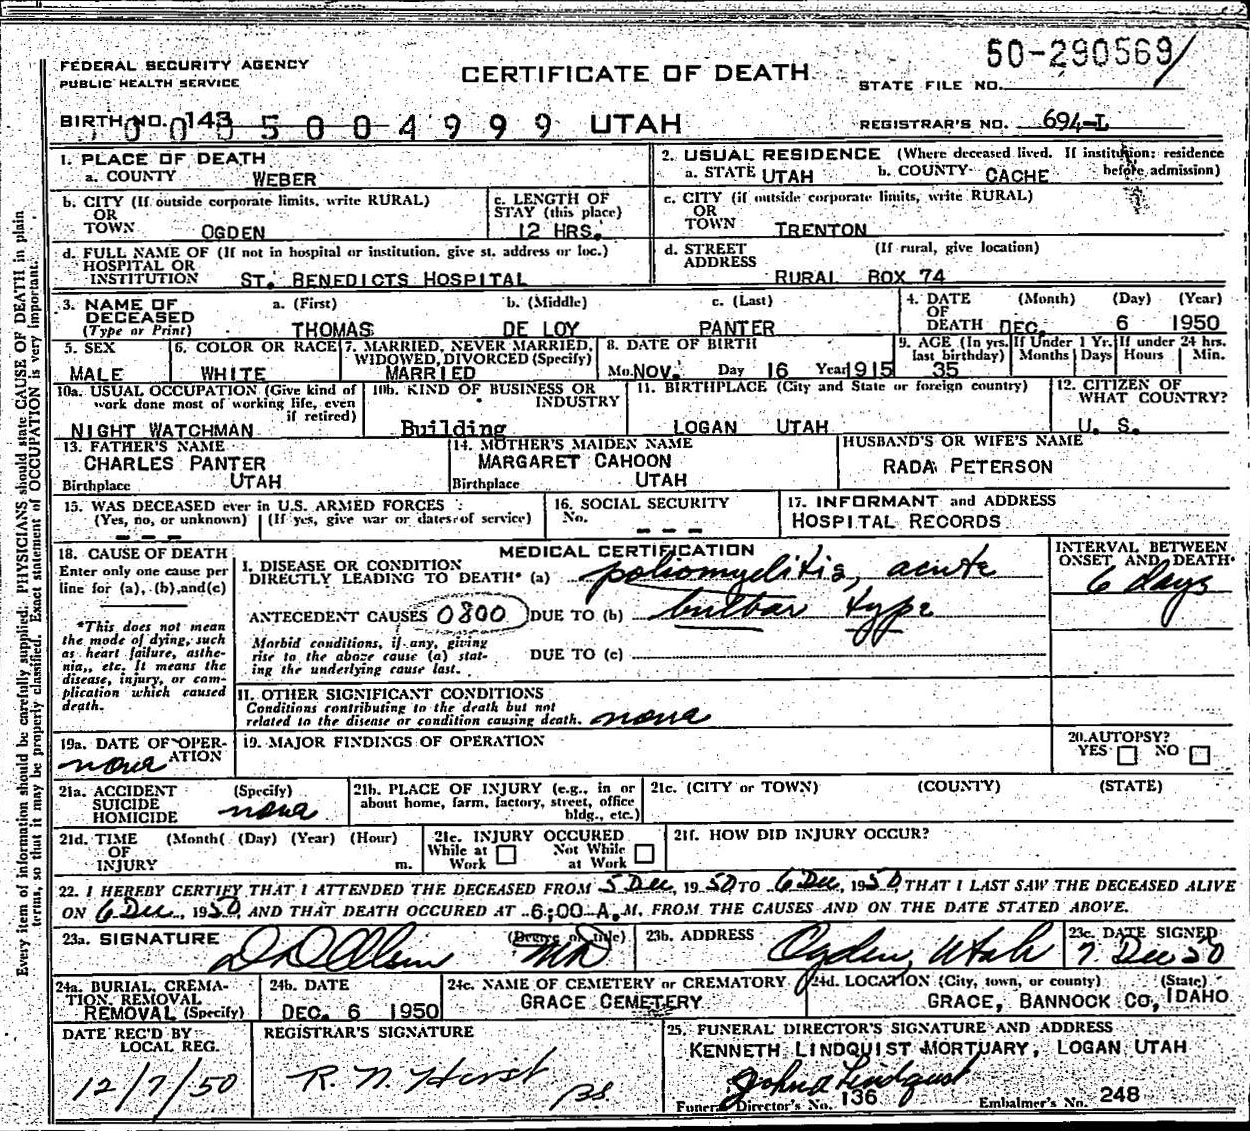 50-290569
FEDERAL SECURITY AGENCY
PUBLIC HEALTH SERVICE
CERTIFICATE OF DEATH
STATE FILE NO.
BIRTH NO. 143
0005004999
UTAH
REGISTRAR'S NO. 694-L
1. PLACE OF DEATH
a. COUNTY WEBER
2. USUAL RESIDENCE (Where deceased lived. If institution: residence before admission)
a. STATE UTAH b. COUNTY CACHE
b. CITY (If outside corporate limits, write RURAL)
OR
TOWN OGDEN
c. LENGTH OF
STAY (this place)
12 HRS.
c. CITY (if outside corporate limits, write RURAL)
OR
TOWN TRENTON
d. FULL NAME OF (If not in hospital or institution, give st. address or loc.)
HOSPITAL OR
INSTITUTION ST. BENEDICTS HOSPITAL
d. STREET (If rural, give location)
ADDRESS RURAL BOX 74
3. NAME OF a. (First) b. (Middle) c. (Last)
DECEASED
(Type or Print) THOMAS DE LOY PANTER
4. DATE (Month) (Day) (Year)
OF
DEATH DEC. 6 1950
5. SEX
MALE
6. COLOR OR RACE
WHITE
7. MARRIED, NEVER MARRIED,
WIDOWED, DIVORCED (Specify)
MARRIED
8. DATE OF BIRTH
Mo. NOV. Day 16 Year 1915
9. AGE (In yrs. last birthday)
35
If Under 1 Yr.
Months Days
If under 24 hrs.
Hours Min.
10a. USUAL OCCUPATION (Give kind of
work done most of working life, even
if retired)
NIGHT WATCHMAN
10b. KIND OF BUSINESS OR
INDUSTRY
Building
11. BIRTHPLACE (City and State or foreign country)
LOGAN UTAH
12. CITIZEN OF
WHAT COUNTRY?
U. S.
13. FATHER'S NAME
CHARLES PANTER
Birthplace UTAH
14. MOTHER'S MAIDEN NAME
MARGARET CAHOON
Birthplace UTAH
HUSBAND'S OR WIFE'S NAME
RADA PETERSON
15. WAS DECEASED ever in U.S. ARMED FORCES
(Yes, no, or unknown) (If yes, give war or dates of service)
- - -
16. SOCIAL SECURITY
No. - - -
17. INFORMANT and ADDRESS
HOSPITAL RECORDS
18. CAUSE OF DEATH
Enter only one cause per
line for (a), (b), and (c)
*This does not mean
the mode of dying, such
as heart failure, asthe-
nia, etc. It means the
disease, injury, or com-
plication which caused
death.
MEDICAL CERTIFICATION
I. DISEASE OR CONDITION
DIRECTLY LEADING TO DEATH* (a) poliomyelitis, acute
ANTECEDENT CAUSES 0800 DUE TO (b) bulbar type
Morbid conditions, if any, giving
rise to the above cause (a) stat-
ing the underlying cause last.
DUE TO (c)
INTERVAL BETWEEN
ONSET AND DEATH
6 days
II. OTHER SIGNIFICANT CONDITIONS
Conditions contributing to the death but not
related to the disease or condition causing death. none
19a. DATE OF OPER-
ATION
none
19. MAJOR FINDINGS OF OPERATION
20. AUTOPSY?
YES NO
21a. ACCIDENT (Specify)
SUICIDE
HOMICIDE none
21b. PLACE OF INJURY (e.g., in or
about home, farm, factory, street, office
bldg., etc.)
21c. (CITY OR TOWN) (COUNTY) (STATE)
21d. TIME (Month) (Day) (Year) (Hour)
OF
INJURY m.
21e. INJURY OCCURED
While at Work Not While at Work
21f. HOW DID INJURY OCCUR?
22. I HEREBY CERTIFY THAT I ATTENDED THE DECEASED FROM 5 Dec, 1950 TO 6 Dec, 1950 THAT I LAST SAW THE DECEASED ALIVE
ON 6 Dec, 1950 AND THAT DEATH OCCURED AT 6:00 A.M. FROM THE CAUSES AND ON THE DATE STATED ABOVE.
23a. SIGNATURE (Degree or title)
Olson MD
23b. ADDRESS
Ogden, Utah
23c. DATE SIGNED
7 Dec 50
24a. BURIAL, CREMA-
TION, REMOVAL
REMOVAL (Specify)
24b. DATE
DEC. 6 1950
24c. NAME OF CEMETERY OR CREMATORY
GRACE CEMETERY
24d. LOCATION (City, town, or county) (State)
GRACE, BANNOCK CO, IDAHO
DATE REC'D BY
LOCAL REG.
12/7/50
REGISTRAR'S SIGNATURE
R. N. Hirst
ps
25. FUNERAL DIRECTOR'S SIGNATURE AND ADDRESS
KENNETH LINDQUIST MORTUARY, LOGAN UTAH
John A Lindquist
Funeral Director's No. 136 Embalmer's No. 248
Every item of information should be carefully supplied. PHYSICIANS should state CAUSE OF DEATH in plain
terms, so that it may be properly classified. Exact statement of OCCUPATION is very important.